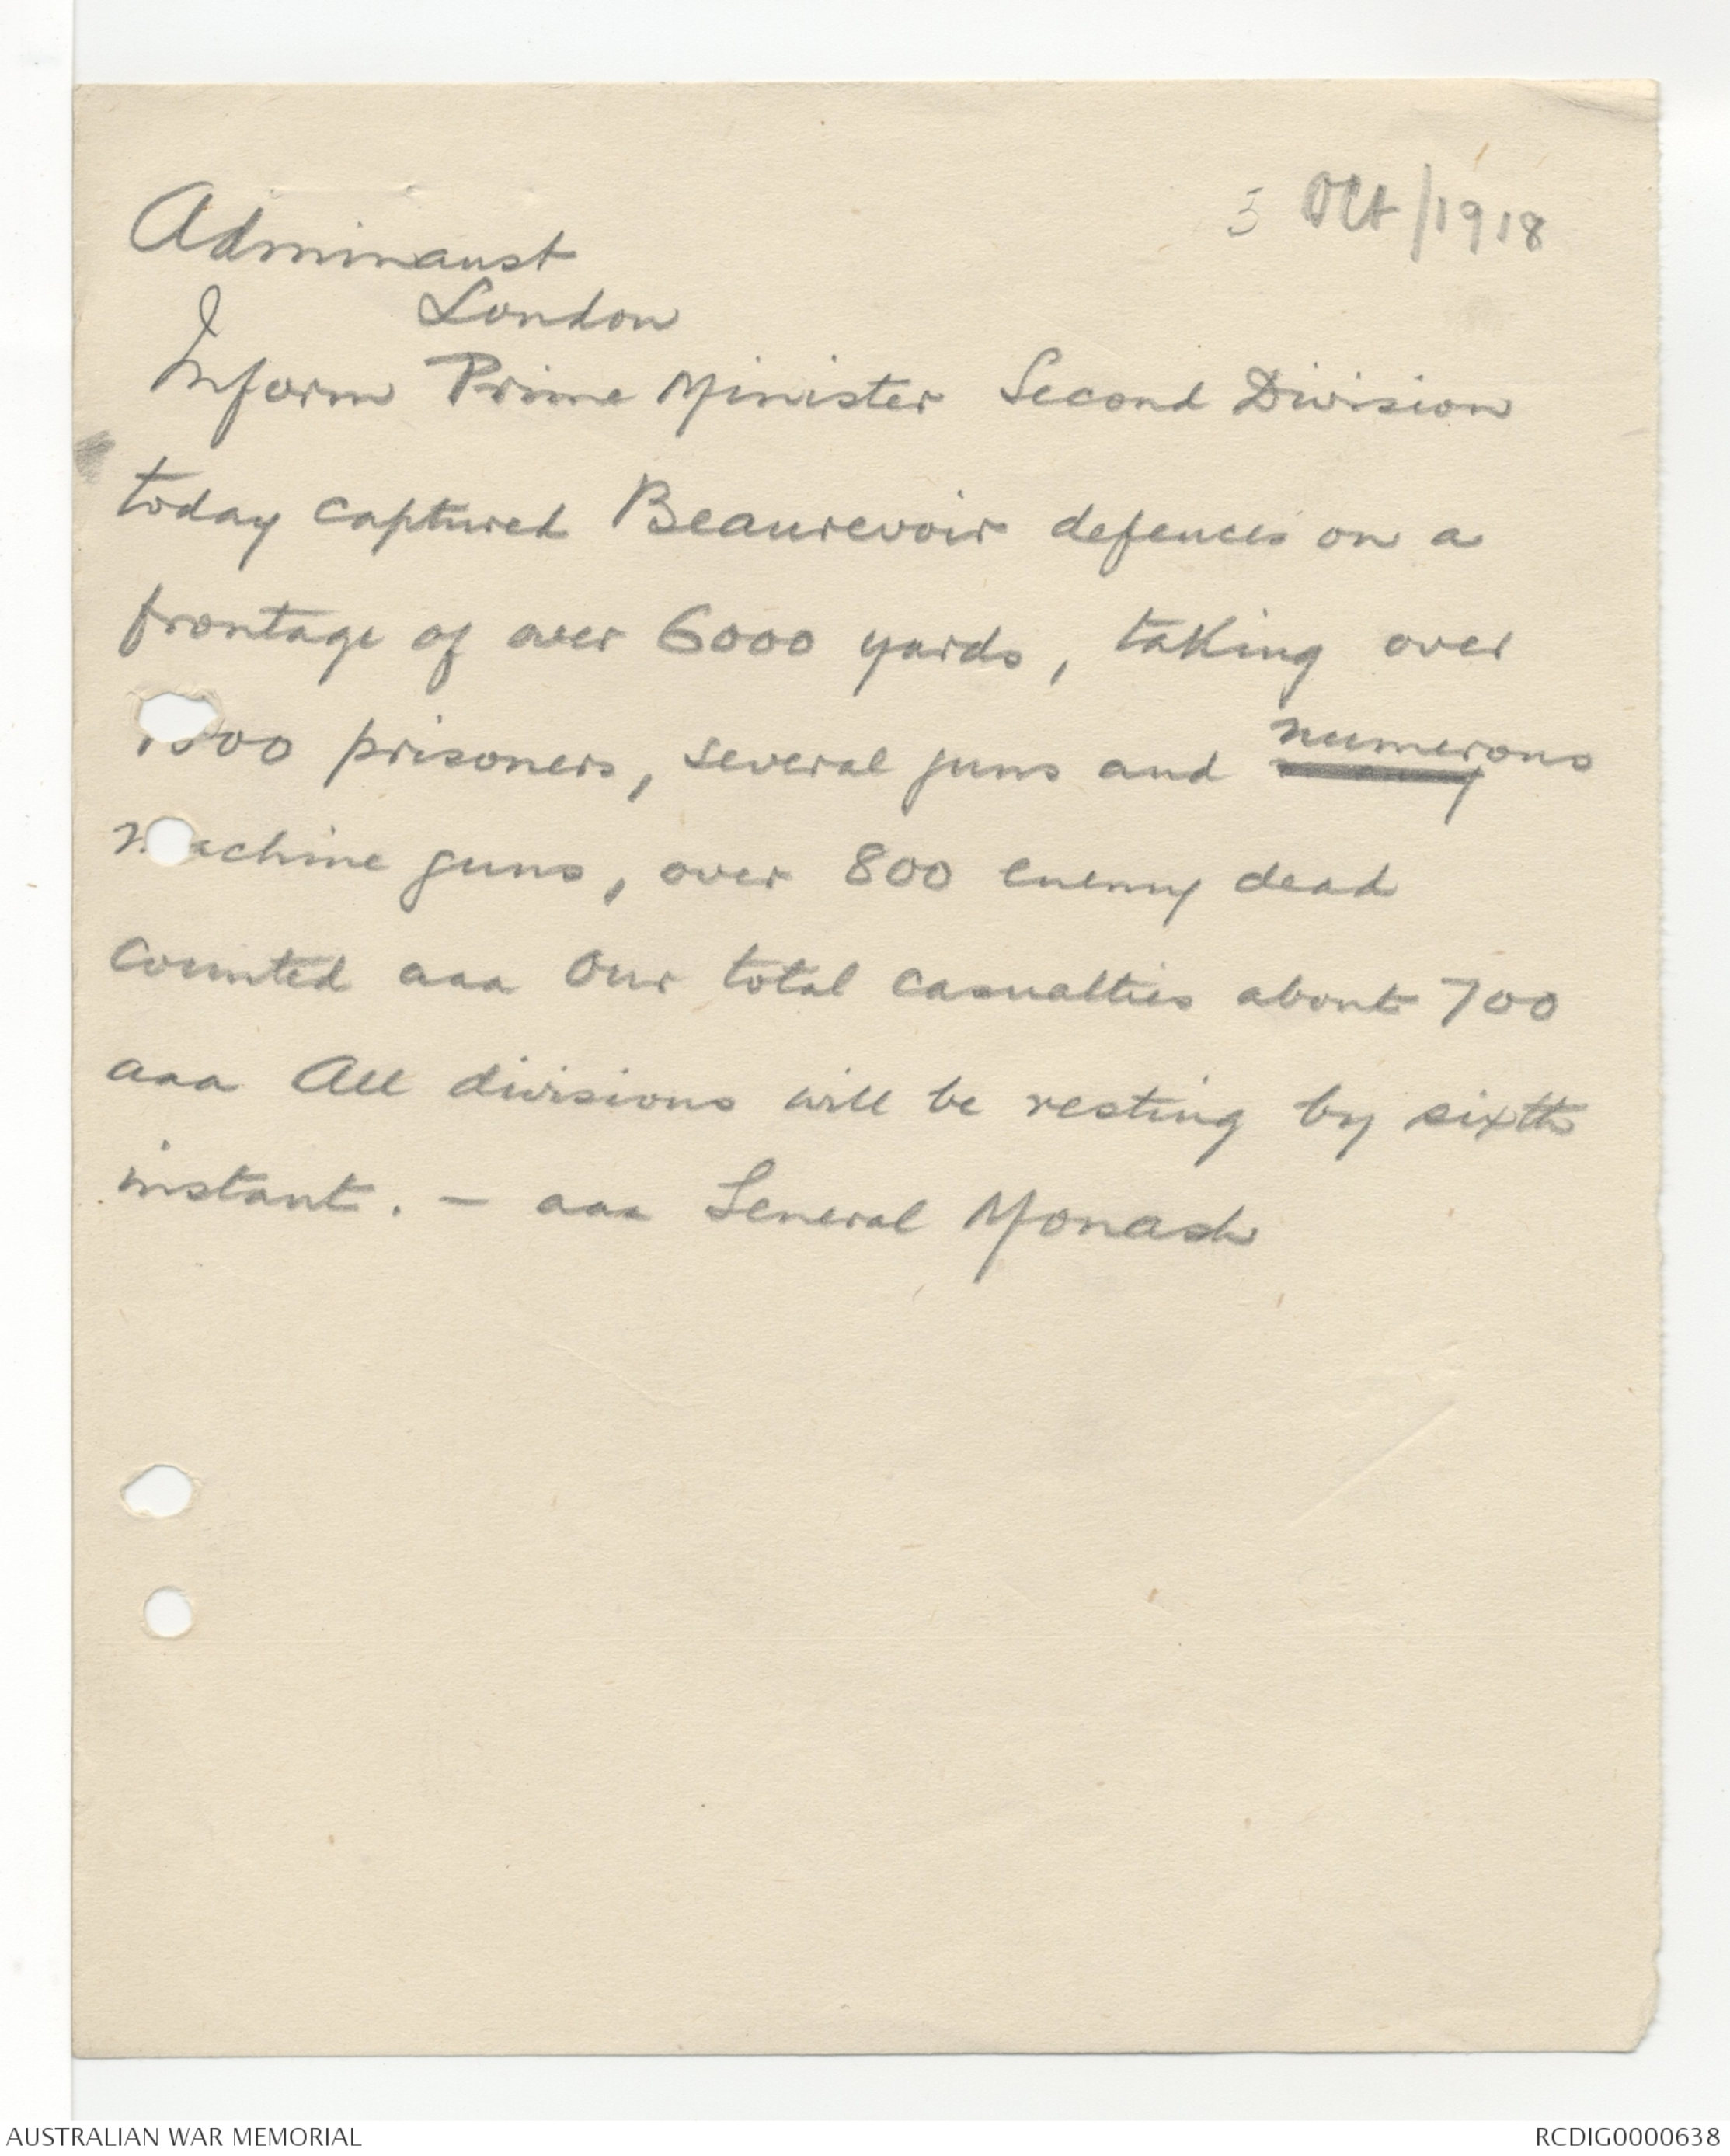 3 Oct/1918
Adminaust
London
Inform Prime Minister Second Division
today captured Beaurevoir defences on a
frontage of over 6000 yards, taking over
prisoners, several guns and numerous
many
machine guns, over 800 enemy dead
counted aaa Our total casualties about 700
aaa All divisions will be resting by sixth
instant. - aaa General Monash
AUSTRALIAN WAR MEMORIAL
RCDIG0000638